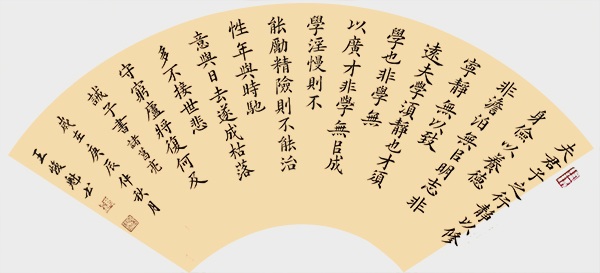 夫君子之行靜以修
身儉以養德
非澹泊無㠯明志非
寧靜無以致
遠夫學須靜也才須
學也非學無
以廣才非學無㠯成
學淫慢則不
能勵精險則不能治
性年與時馳
意與日去遂成枯落
多不接世悲
守窮廬將復何及
誡子書諸葛亮
庚辰仲秋月
王